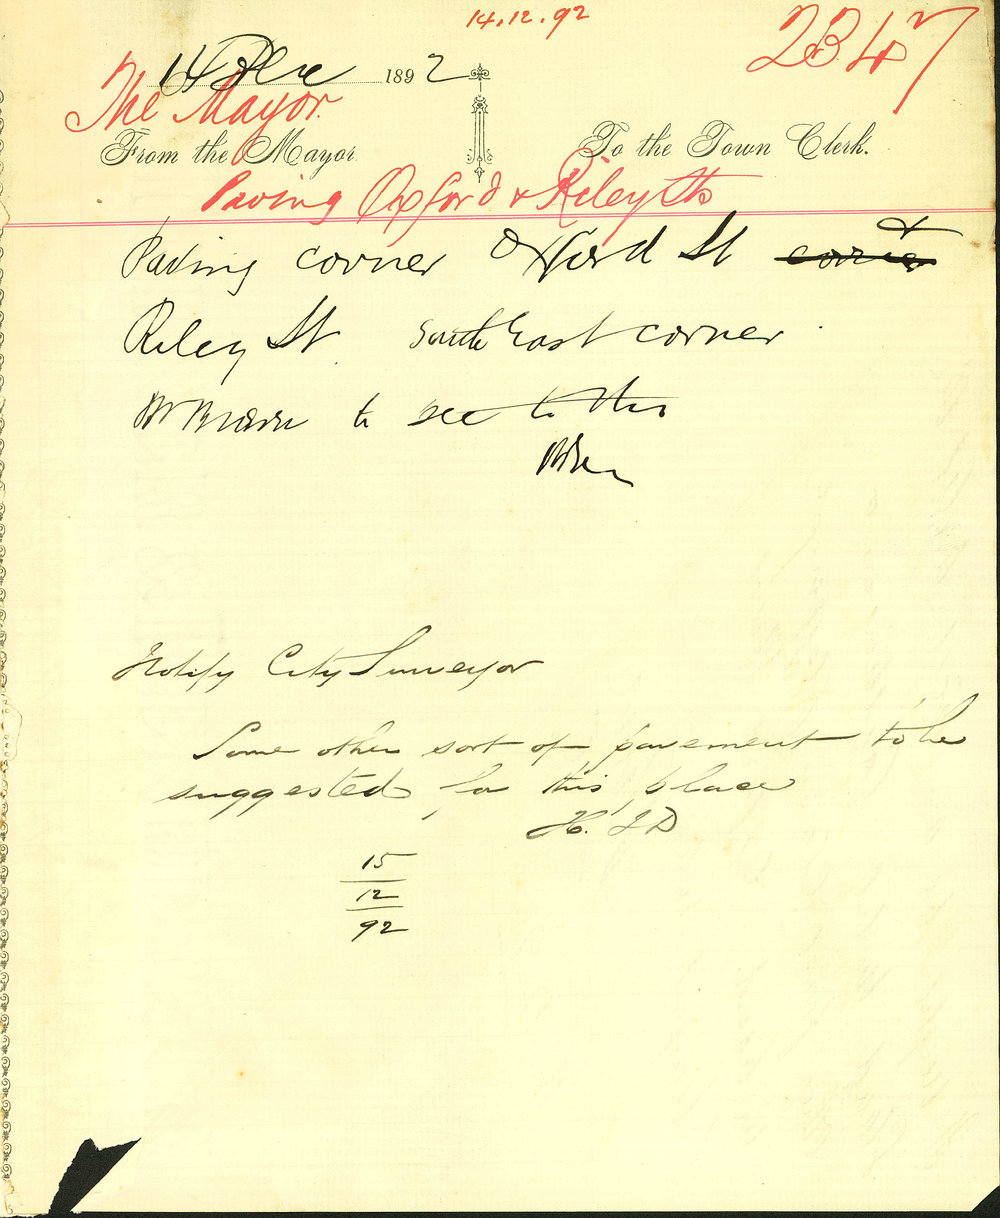 14.12.92
2347
14 Dec 1892
The Mayor.
From the Mayor
To the Town Clerk.
Paving Oxford & Riley Sts
Paving corner Oxford St &
Riley St South East corner
to see to this
Notify City Surveyor
Some other sort of pavement to be
suggested for this place
15
12
92